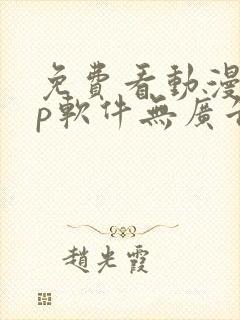 免費看動漫
p軟件無廣
趙光霞